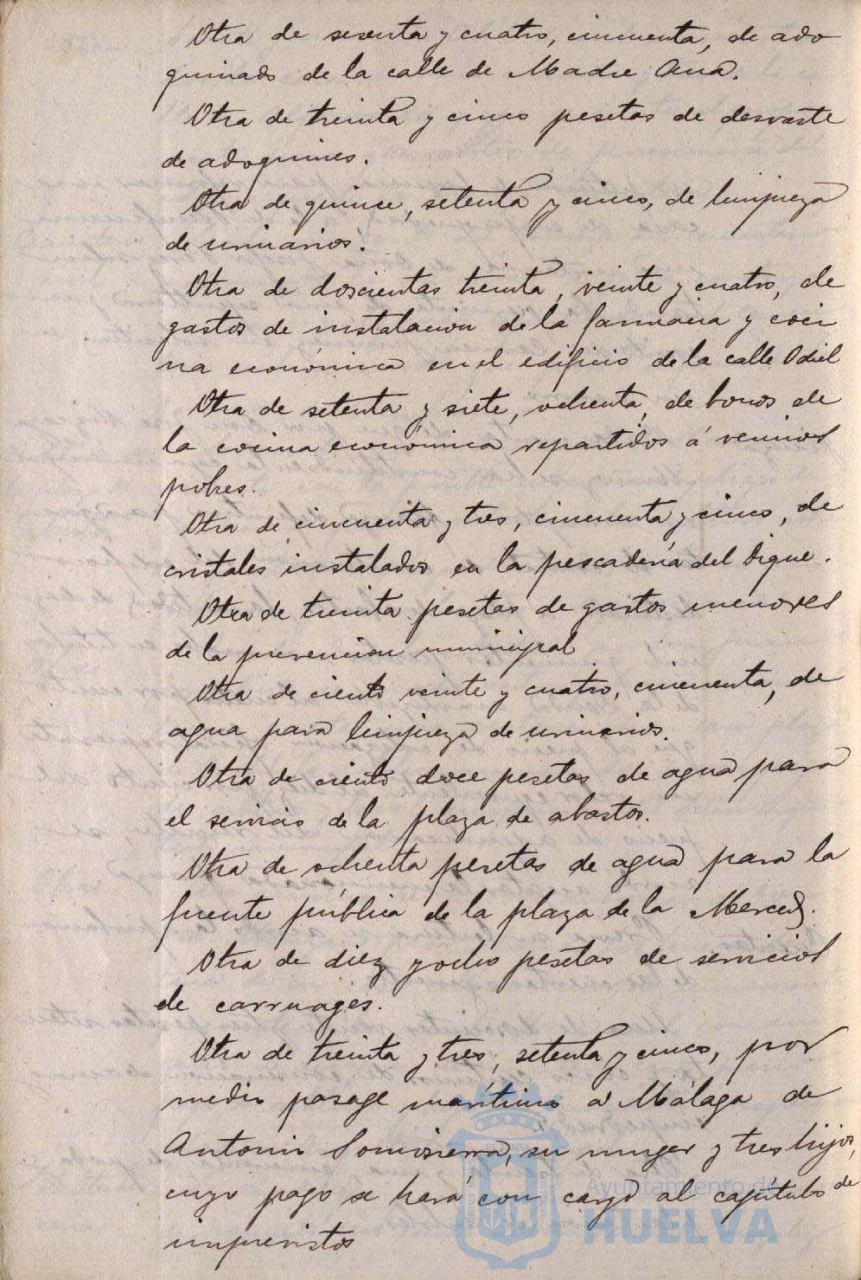 Otra de sesenta y cuatro, cincuenta, de ado
quinado de la calle de Madre Ana.
Otra de treinta y cinco pesetas de desvaste
de adoquines.
Otra de quince, setenta y cinco, de limpieza
de urinarios.
Otra de doscientas treinta, veinte y cuatro, de
gastos de instalacion de la farmacia y coci
na económica en el edificio de la calle Odiel
Otra de setenta y siete, ochenta, de bonos de
la cocina económica repartidos á vecinos
pobres.
Otra de cincuenta y tres, cincuenta y cinco, de
cristales instalados en la pescadería del Dique.
Otra de treinta pesetas de gastos menores
de la prevencion municipal
Otra de ciento veinte y cuatro, cincuenta, de
agua para limpieza de urinarios.
Otra de ciento doce pesetas de agua para
el servicio de la plaza de abastos.
Otra de ochenta pesetas de agua para la
fuente pública de la plaza de la Merced.
Otra de diez y ocho pesetas de servicios
de carruages.
Otra de treinta y tres, setenta y cinco, por
medio pasage marítimo a Málaga de
Antonio Somosierra, su muger y tres hijos,
cuyo pago se hará con cargo al capítulo de
imprevistos
Ayuntamiento de
HUELVA